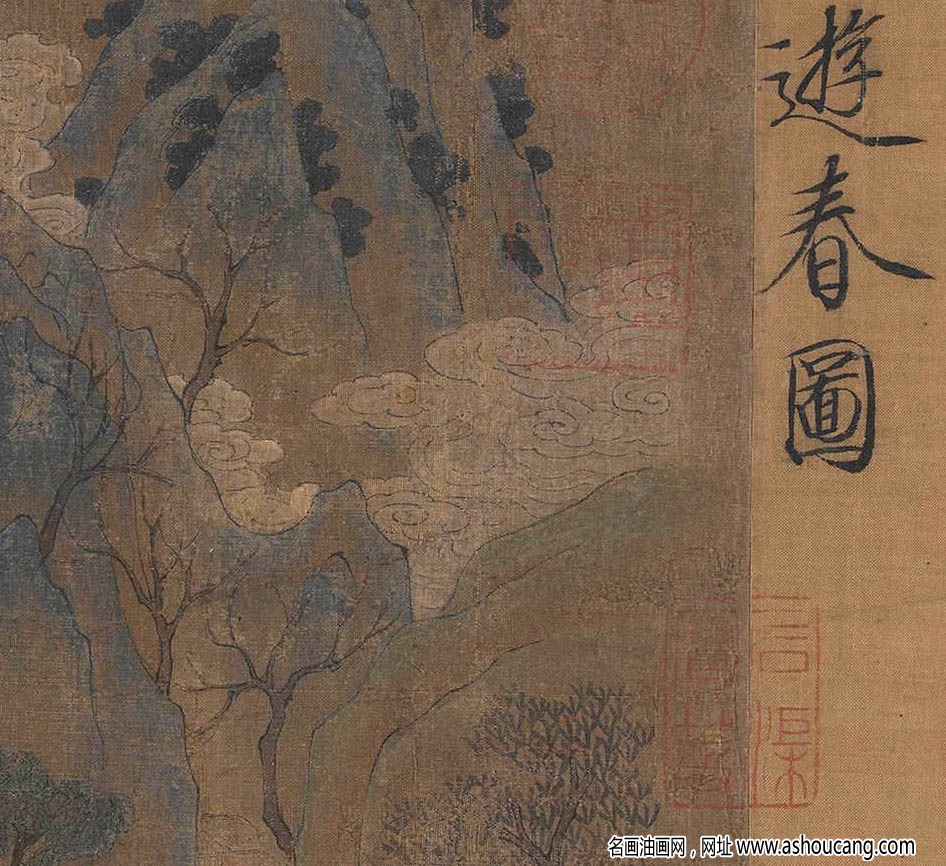 遊春圖
名画油画网，网址 www.ashoucang.com